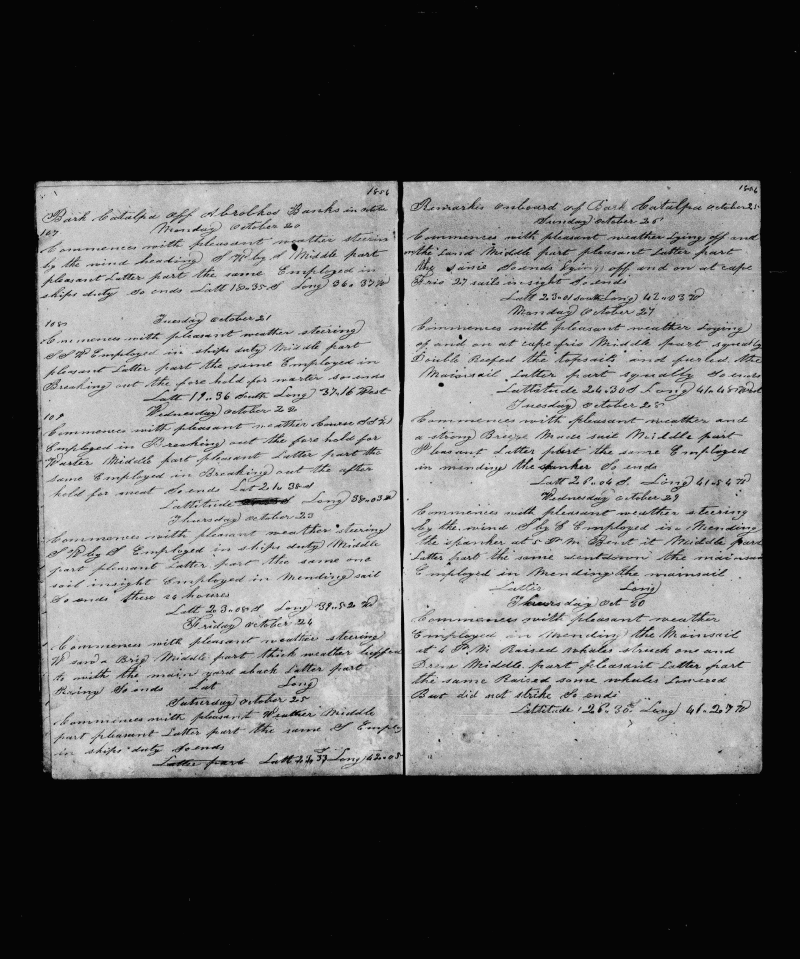 1856
Bark Catalpa off Abrolhos Banks in
107 Monday October 20
Commences with pleasant weather steering
by the wind heading S W by S Middle part
pleasant Latter part the same Employed in
ships duty So ends Latt 18=35 S Long 36=37 W
108 Tuesday October 21
Commences with pleasant weather steering
S S W Employed in ships duty Middle part
pleasant Latter part the same Employed in
Breaking out the fore hold for warter so ends
Latt 19=36 South Long 37=16 West
109 Wednesday October 22
Commences with pleasant weather Course S S W
Employed in Breaking out the fore hold for
Warter Middle part pleasant Latter part the
same Employed in Breaking out the after
hold for meat So ends Lat 21=38 S
Lattitude Long 38=03 W
Thursday October 23
Commences with pleasant weather steering
S W by S Employed in ships duty Middle
part pleasant Latter part the same one
sail insight Employed in Mending sail
So ends these 24 houres
Latt 23=08 S Long 39=52 W
Friday October 24
Commences with pleasant weather steering
W saw a Brig Middle part thick weather luffed
to with the main yard aback Latter part
So ends Lat Long
Saturday October 25
Commences with pleasant Weather Middle
part pleasant Latter part the same Employ
in ships duty So ends
Latter part Latt 22=37 Long 42=05
1856
Remarkes onboard of Bark Catalpa October
Sunday October 26
Commences with pleasant weather Lying off and
on the Land Middle part pleasant Latter part
the Same So ends Lying off and on at cape
Frio 27 sails insight So ends
Latt 23=01 South Long 42=03 W
Monday October 27
Commences with pleasant weather Laying
of and on at cape frio Middle part squally
Double Reefed the topsails and furled the
Mainsail Latter part squally So ends
Lattitude 24=30 S Long 41=48 West
Tuesday October 28
Commences with pleasant weather and
a strong Breeze Made sail Middle part
Pleasant Latter part the same Employed
in mending the spanker So ends
Latt 26=04 S Long 41=54 W
Wednesday October 29
Commences with pleasant weather steering
by the wind S by E Employed in Mending
the spanker at 5 P M Bent it Middle part
Latter part the same sent down the mainsail
Employed in Mending the mainsail
Latter Long
Thursday Oct 30
Commences with pleasant weather
Employed in Mending the Mainsail
at 4 P.M. Raised whales struck one and
Drew Middle part pleasant Latter part
the same Raised some whales Lowered
But did not strike So ends
Lattitude 26=30 S Long 41=27 W